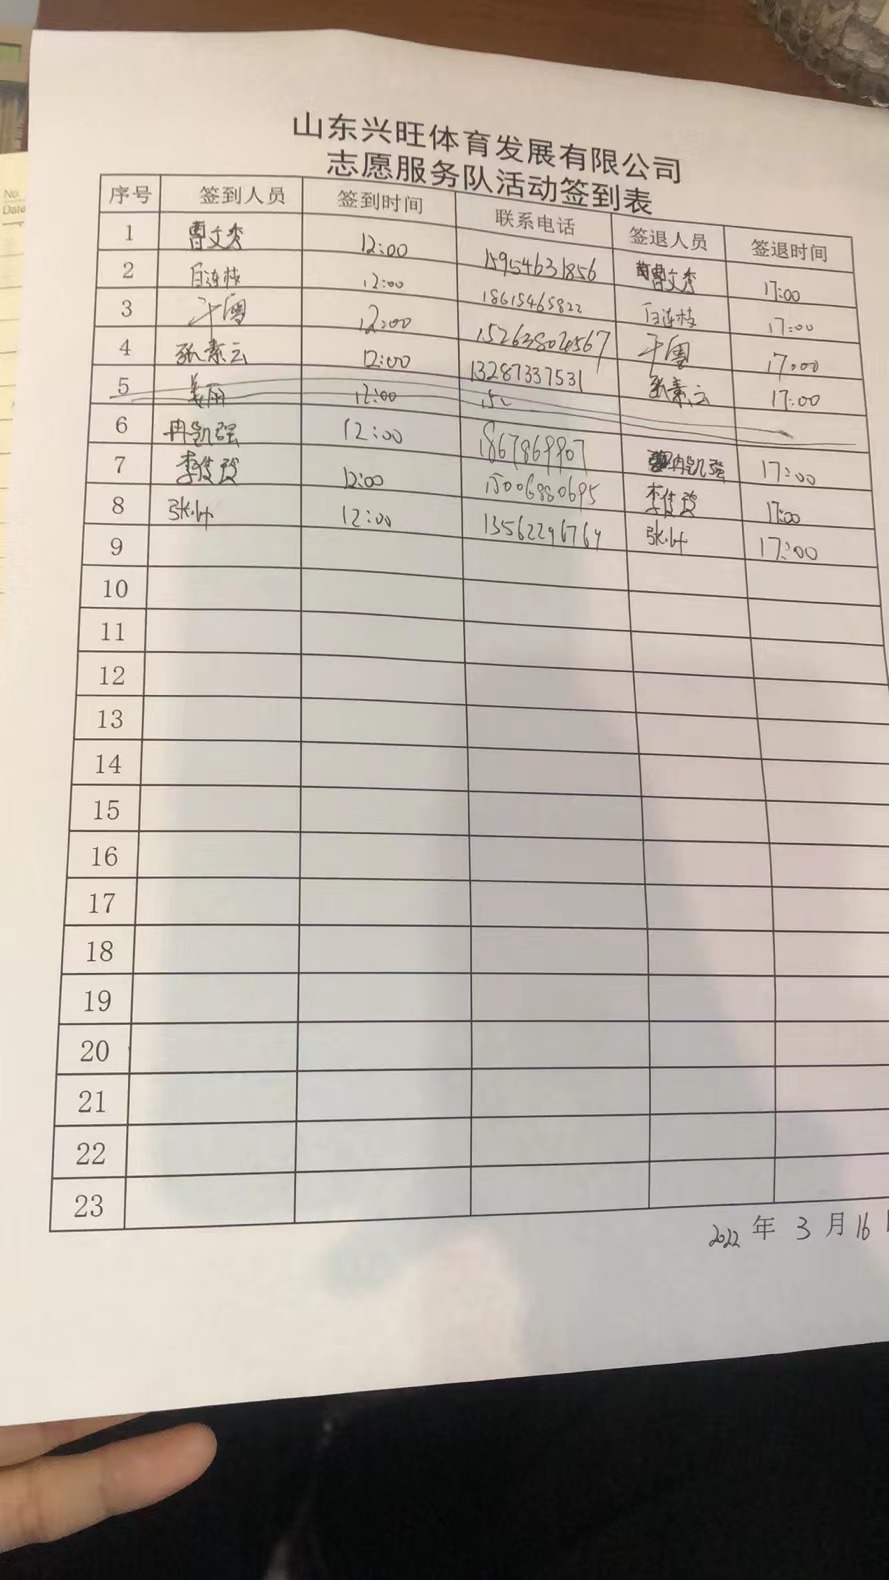 No.
Date
山东兴旺体育发展有限公司
志愿服务队活动签到表
序号 签到人员 签到时间 联系电话 签退人员 签退时间
1 曹文秀 12:00 15954631856 曹文秀 17:00
2 白连枝 12:00 18615465822 白连枝 17:00
3 12:00 15263804567 17:00
4 张素云 12:00 13287337531 张素云 17:00
5 姜丽 12:00 15
6 冉凯强 12:00 1867869907 冉凯强 17:00
7 李俊玲 12:00 15006880695 李俊玲 17:00
8 张 12:00 13562296769 张 17:00
9
10
11
12
13
14
15
16
17
18
19
20
21
22
23
2022 年 3 月 16